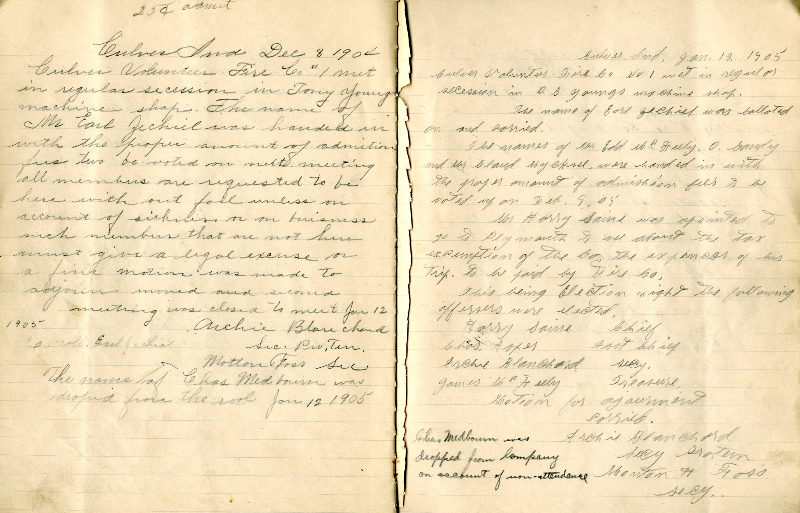 25¢ admit
Culver Ind Dec 8 1904
Culver Volunteer Fire Co "1 met
in regular secession in Tony Young
machine shop. The name of
Mr Earl Zechiel was handed in
with the proper amount of admition
fees two be voted on next meeting
all members are requested to be
here with out fail unless on
account of sickness or on buisness
such member that are not here
must give a legal excuse or
a fine motion was made to
adjorn moved and second
meeting was closed to meet Jan 12
1905
Archie Blanchard
Sec. Pro. Ten.
Motton Foss Sec
The name of Chas Medbourn was
droped from the rool Jan 12 1905
Culver Ind, Jan. 12 1905
Culver Volunter Fire Co No. 1 met in regular
secession in O B youngs machine shop.
The name of Earl Zechiel was balloted
on and carried.
The names of Mr Edd McFeely. O. Gandy
and Mr Claud were handed in with
the proper amount of admission fees to be
voted up on Feb. 9. 05
Mr Harry Saine was apointed to
go to Plymouth to see about the tax
exemption of the Co, the expences of his
trip. to be paid by Fire Co.
this being Election night the following
officers were elected.
Harry Saine Chief
Asst Chief
Archie Blanchard secy.
James McFeely Treasure.
Motion for ajourment
carried.
Archie Blanchard
Secy Protem
Morton H Foss
secy.
Chas Medbourn was
dropped from Company
on account of non-attendence